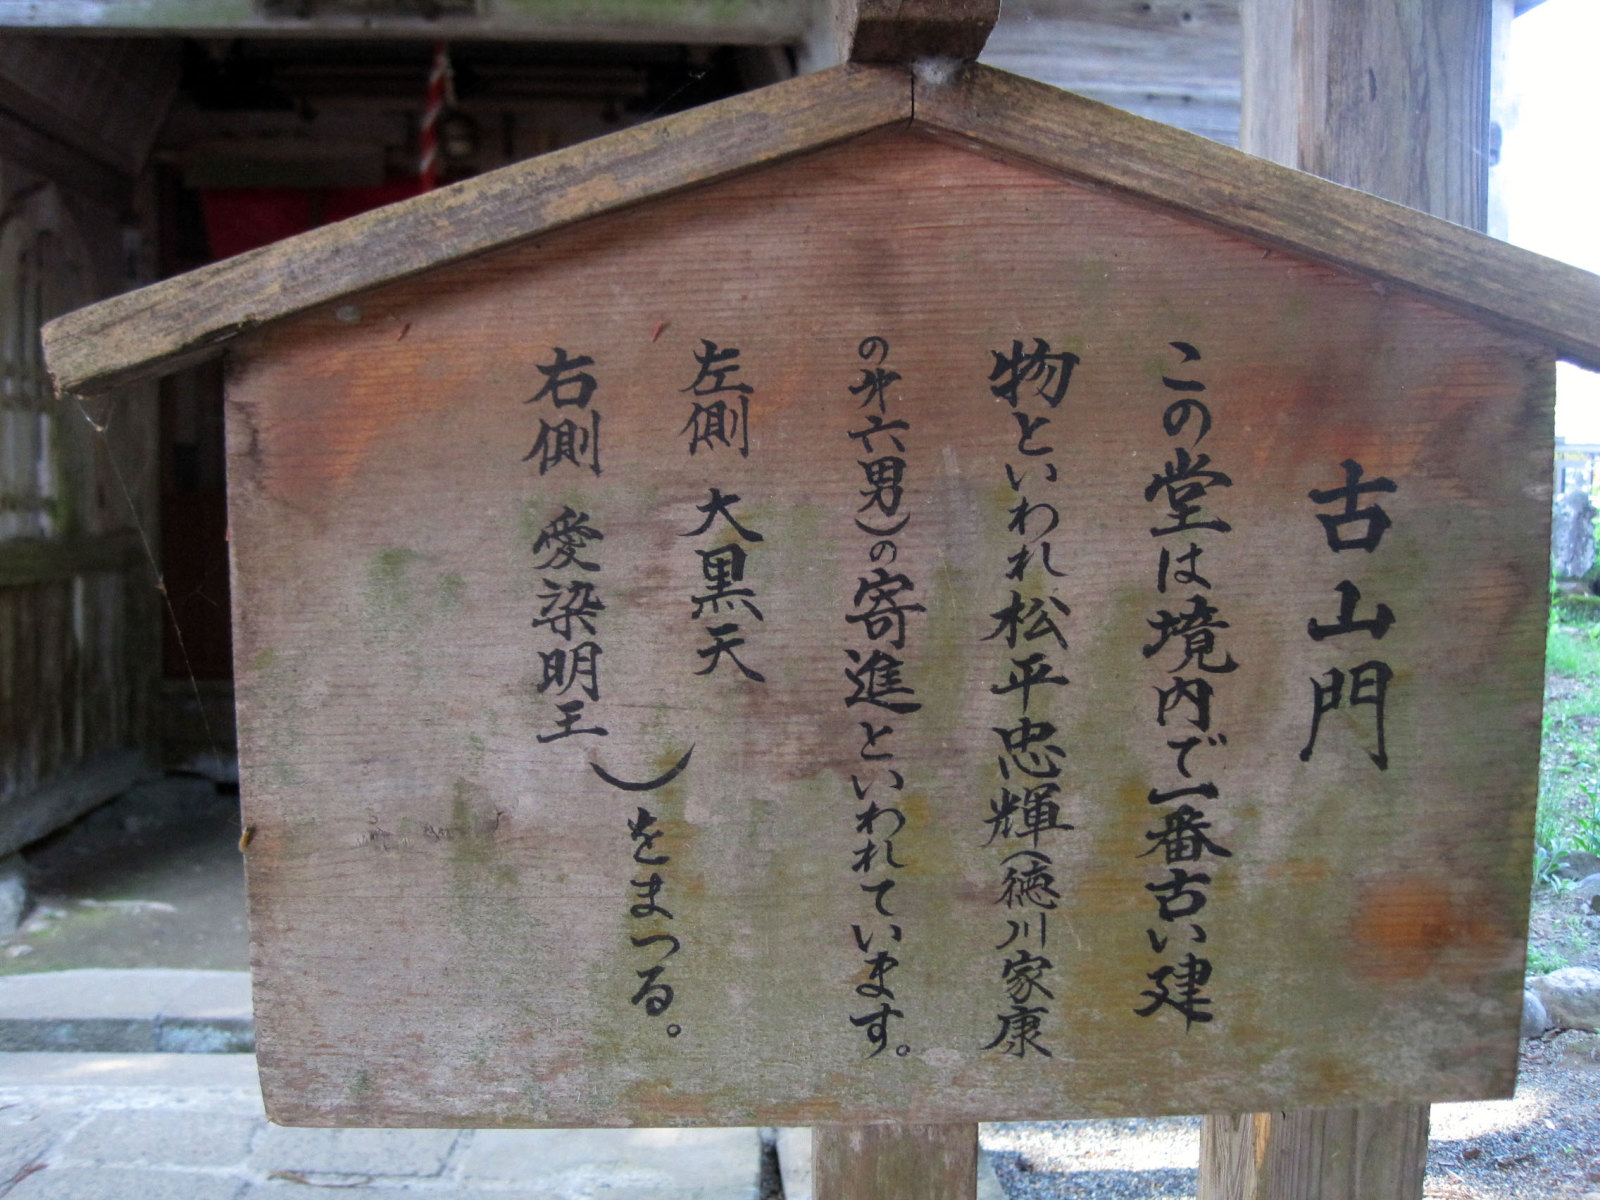 古山門
この堂は境内で一番古い建
物といわれ松平忠輝(徳川家康
の㐧六男)の寄進といわれています。
左側 大黒天
右側 愛染明王
をまつる。